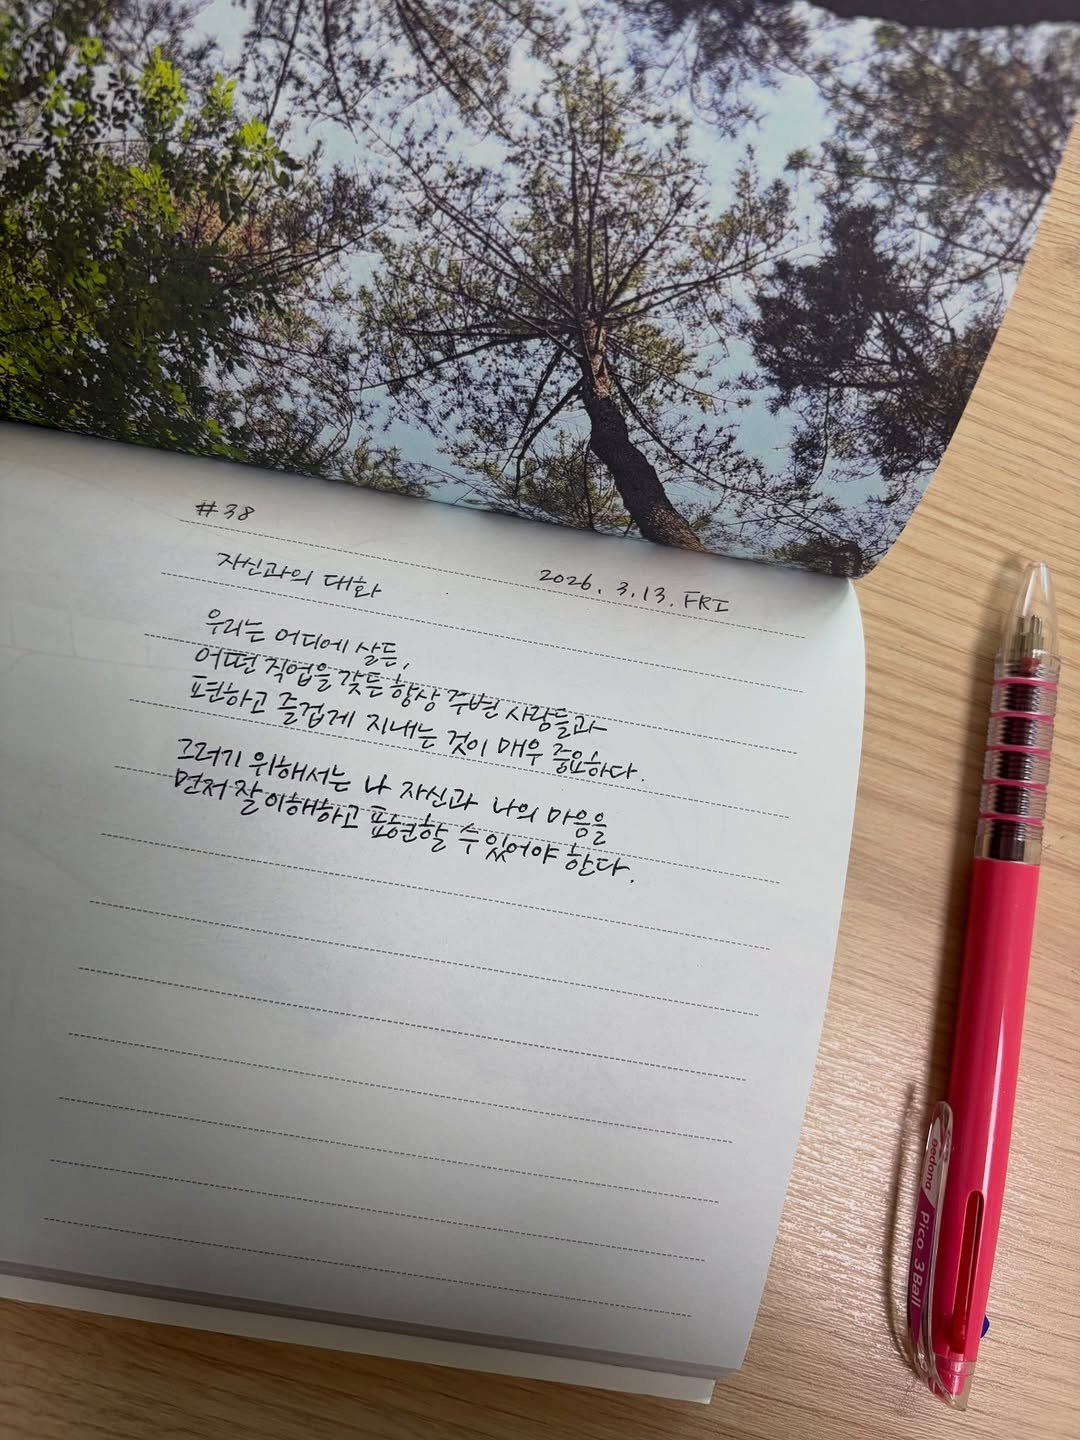 #38
자신과의 대화
2026. 3. 13. FRI
우리는 어디에 살든,
어떤 직업을 갖든 항상 주변 사람들과
편하고 즐겁게 지내는 것이 매우 중요하다.
그러기 위해서는 나 자신과 나의 마음을
먼저 잘 이해하고 표현할 수 있어야 한다.
nedona Pico 3Ball